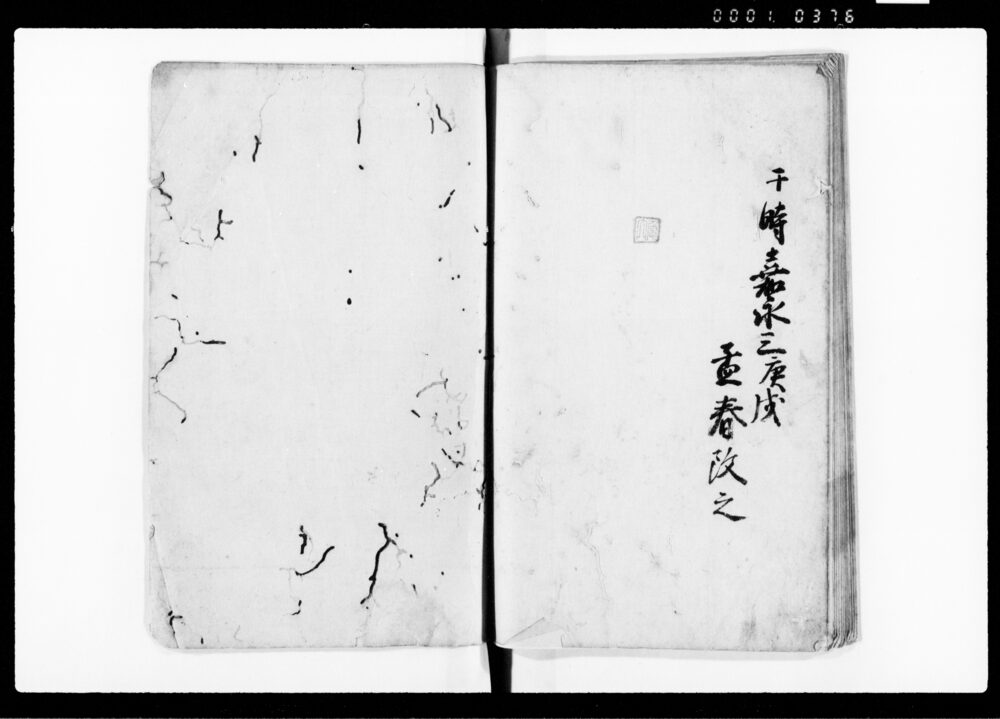 0001. 0376
干時嘉永三庚戌
孟春改之